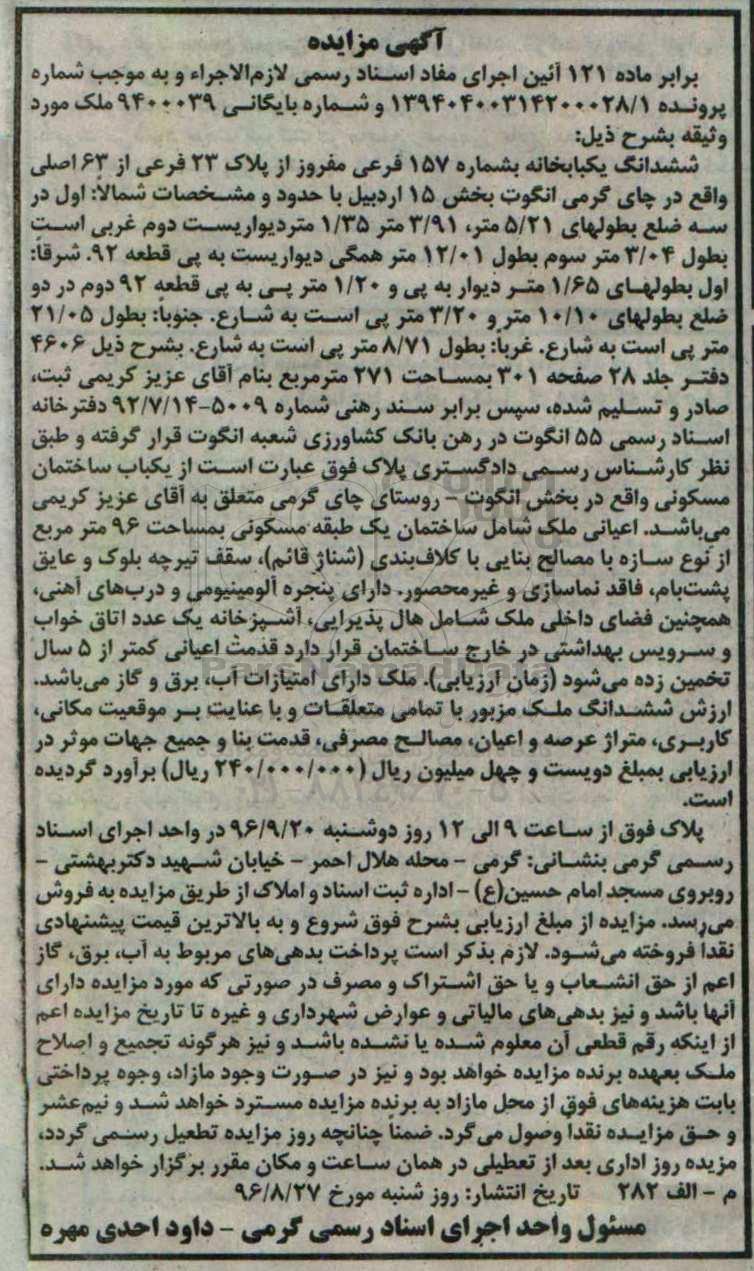 آگهی مزایده
برابر ماده ۱۲۱ آئین اجرای مفاد اسناد رسمی لازم‌الاجراء و به موجب شماره
پرونده ۱۳۹۴۰۴۰۰۳۱۴۲۰۰۰۲۸/۱ و شماره بایگانی ۹۴۰۰۰۳۹ ملک مورد
وثیقه بشرح ذیل:
ششدانگ یکبابخانه بشماره ۱۵۷ فرعی مفروز از پلاک ۲۳ فرعی از ۶۳ اصلی
واقع در چای گرمی انگوت بخش ۱۵ اردبیل با حدود و مشخصات شمالاً: اول در
سه ضلع بطولهای ۵/۲۱ متر، ۳/۹۱ متر ۱/۳۵ متردیواریست دوم غربی است
بطول ۳/۰۴ متر سوم بطول ۱۲/۰۱ متر همگی دیواریست به پی قطعه ۹۲. شرقاً:
اول بطولهای ۱/۶۵ متر دیوار به پی و ۱/۲۰ متر پی به پی قطعه ۹۲ دوم در دو
ضلع بطولهای ۱۰/۱۰ متر و ۳/۲۰ متر پی است به شارع. جنوباً: بطول ۲۱/۰۵
متر پی است به شارع. غرباً: بطول ۸/۷۱ متر پی است به شارع. بشرح ذیل ۴۶۰۶
دفتر جلد ۲۸ صفحه ۳۰۱ بمساحت ۲۷۱ مترمربع بنام آقای عزیز کریمی ثبت،
صادر و تسلیم شده، سپس برابر سند رهنی شماره ۵۰۰۹-۹۲/۷/۱۴ دفترخانه
اسناد رسمی ۵۵ انگوت در رهن بانک کشاورزی شعبه انگوت قرار گرفته و طبق
نظر کارشناس رسمی دادگستری پلاک فوق عبارت است از یکباب ساختمان
مسکونی واقع در بخش انگوت - روستای چای گرمی متعلق به آقای عزیز کریمی
می‌باشد. اعیانی ملک شامل ساختمان یک طبقه مسکونی بمساحت ۹۶ متر مربع
از نوع سازه با مصالح بنایی با کلاف‌بندی (شناژ قائم)، سقف تیرچه بلوک و عایق
پشت‌بام، فاقد نماسازی و غیرمحصور. دارای پنجره آلومینیومی و درب‌های آهنی،
همچنین فضای داخلی ملک شامل هال پذیرایی، آشپزخانه یک عدد اتاق خواب
و سرویس بهداشتی در خارج ساختمان قرار دارد قدمت اعیانی کمتر از ۵ سال
تخمین زده می‌شود (زمان ارزیابی). ملک دارای امتیازات آب، برق و گاز می‌باشد.
ارزش ششدانگ ملک مزبور با تمامی متعلقات و با عنایت بر موقعیت مکانی،
کاربری، متراژ عرصه و اعیان، مصالح مصرفی، قدمت بنا و جمیع جهات موثر در
ارزیابی بمبلغ دویست و چهل میلیون ریال (۲۴۰/۰۰۰/۰۰۰ ریال) برآورد گردیده
است.
پلاک فوق از ساعت ۹ الی ۱۲ روز دوشنبه ۹۶/۹/۲۰ در واحد اجرای اسناد
رسمی گرمی بنشانی: گرمی - محله هلال احمر - خیابان شهید دکتربهشتی -
روبروی مسجد امام حسین(ع) - اداره ثبت اسناد و املاک از طریق مزایده به فروش
می‌رسد. مزایده از مبلغ ارزیابی بشرح فوق شروع و به بالاترین قیمت پیشنهادی
نقداً فروخته می‌شود. لازم بذکر است پرداخت بدهی‌های مربوط به آب، برق، گاز
اعم از حق انشعاب و یا حق اشتراک و مصرف در صورتی که مورد مزایده دارای
آنها باشد و نیز بدهی‌های مالیاتی و عوارض شهرداری و غیره تا تاریخ مزایده اعم
از اینکه رقم قطعی آن معلوم شده یا نشده باشد و نیز هرگونه تجمیع و اصلاح
ملک بعهده برنده مزایده خواهد بود و نیز در صورت وجود مازاد، وجوه پرداختی
بابت هزینه‌های فوق از محل مازاد به برنده مزایده مسترد خواهد شد و نیم‌عشر
و حق مزایده نقداً وصول می‌گرد. ضمناً چنانچه روز مزایده تطعیل رسمی گردد،
مزیده روز اداری بعد از تعطیلی در همان ساعت و مکان مقرر برگزار خواهد شد.
م - الف ۲۸۲ تاریخ انتشار: روز شنبه مورخ ۹۶/۸/۲۷
مسئول واحد اجرای اسناد رسمی گرمی - داود احدی مهره